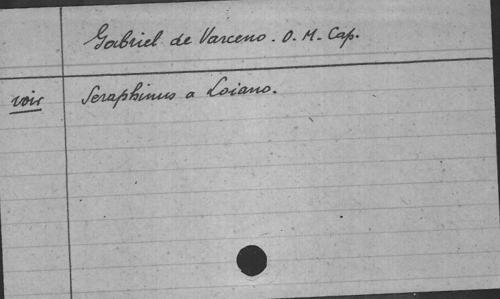 Gabriel de Varceno. O. M. Cap.
voir Seraphinus a Loiano.